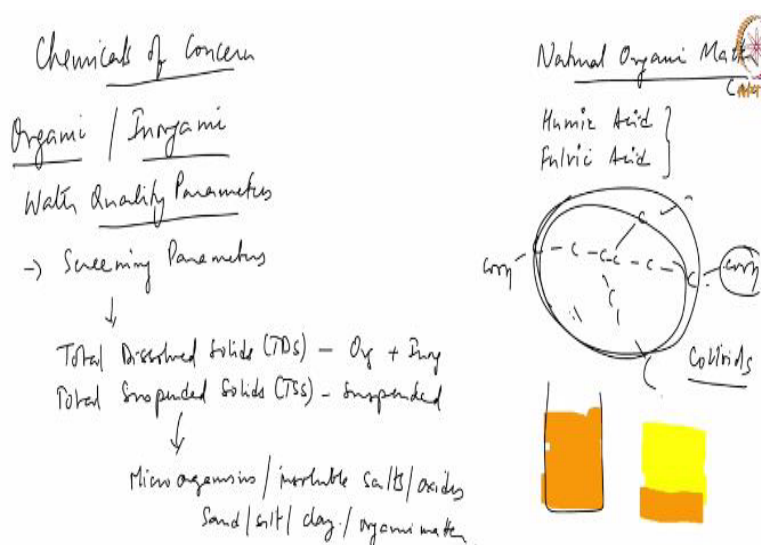 Chemicals of Concern
Organi / Inorgani
Water Quality Parameters
-> Screening Parameters
↓
Total Dissolved Solids (TDS) - Org + Inorg
Total Suspended Solids (TSS) - Suspended
↓
Micro organisms / insoluble salts / oxides
Sand / silt / clay / organi matter
Natural Organi Matt
Humic Acid
Fulvic Acid }
C
COOH - C - C - C C - C - C - COOH
C
C
Colloids